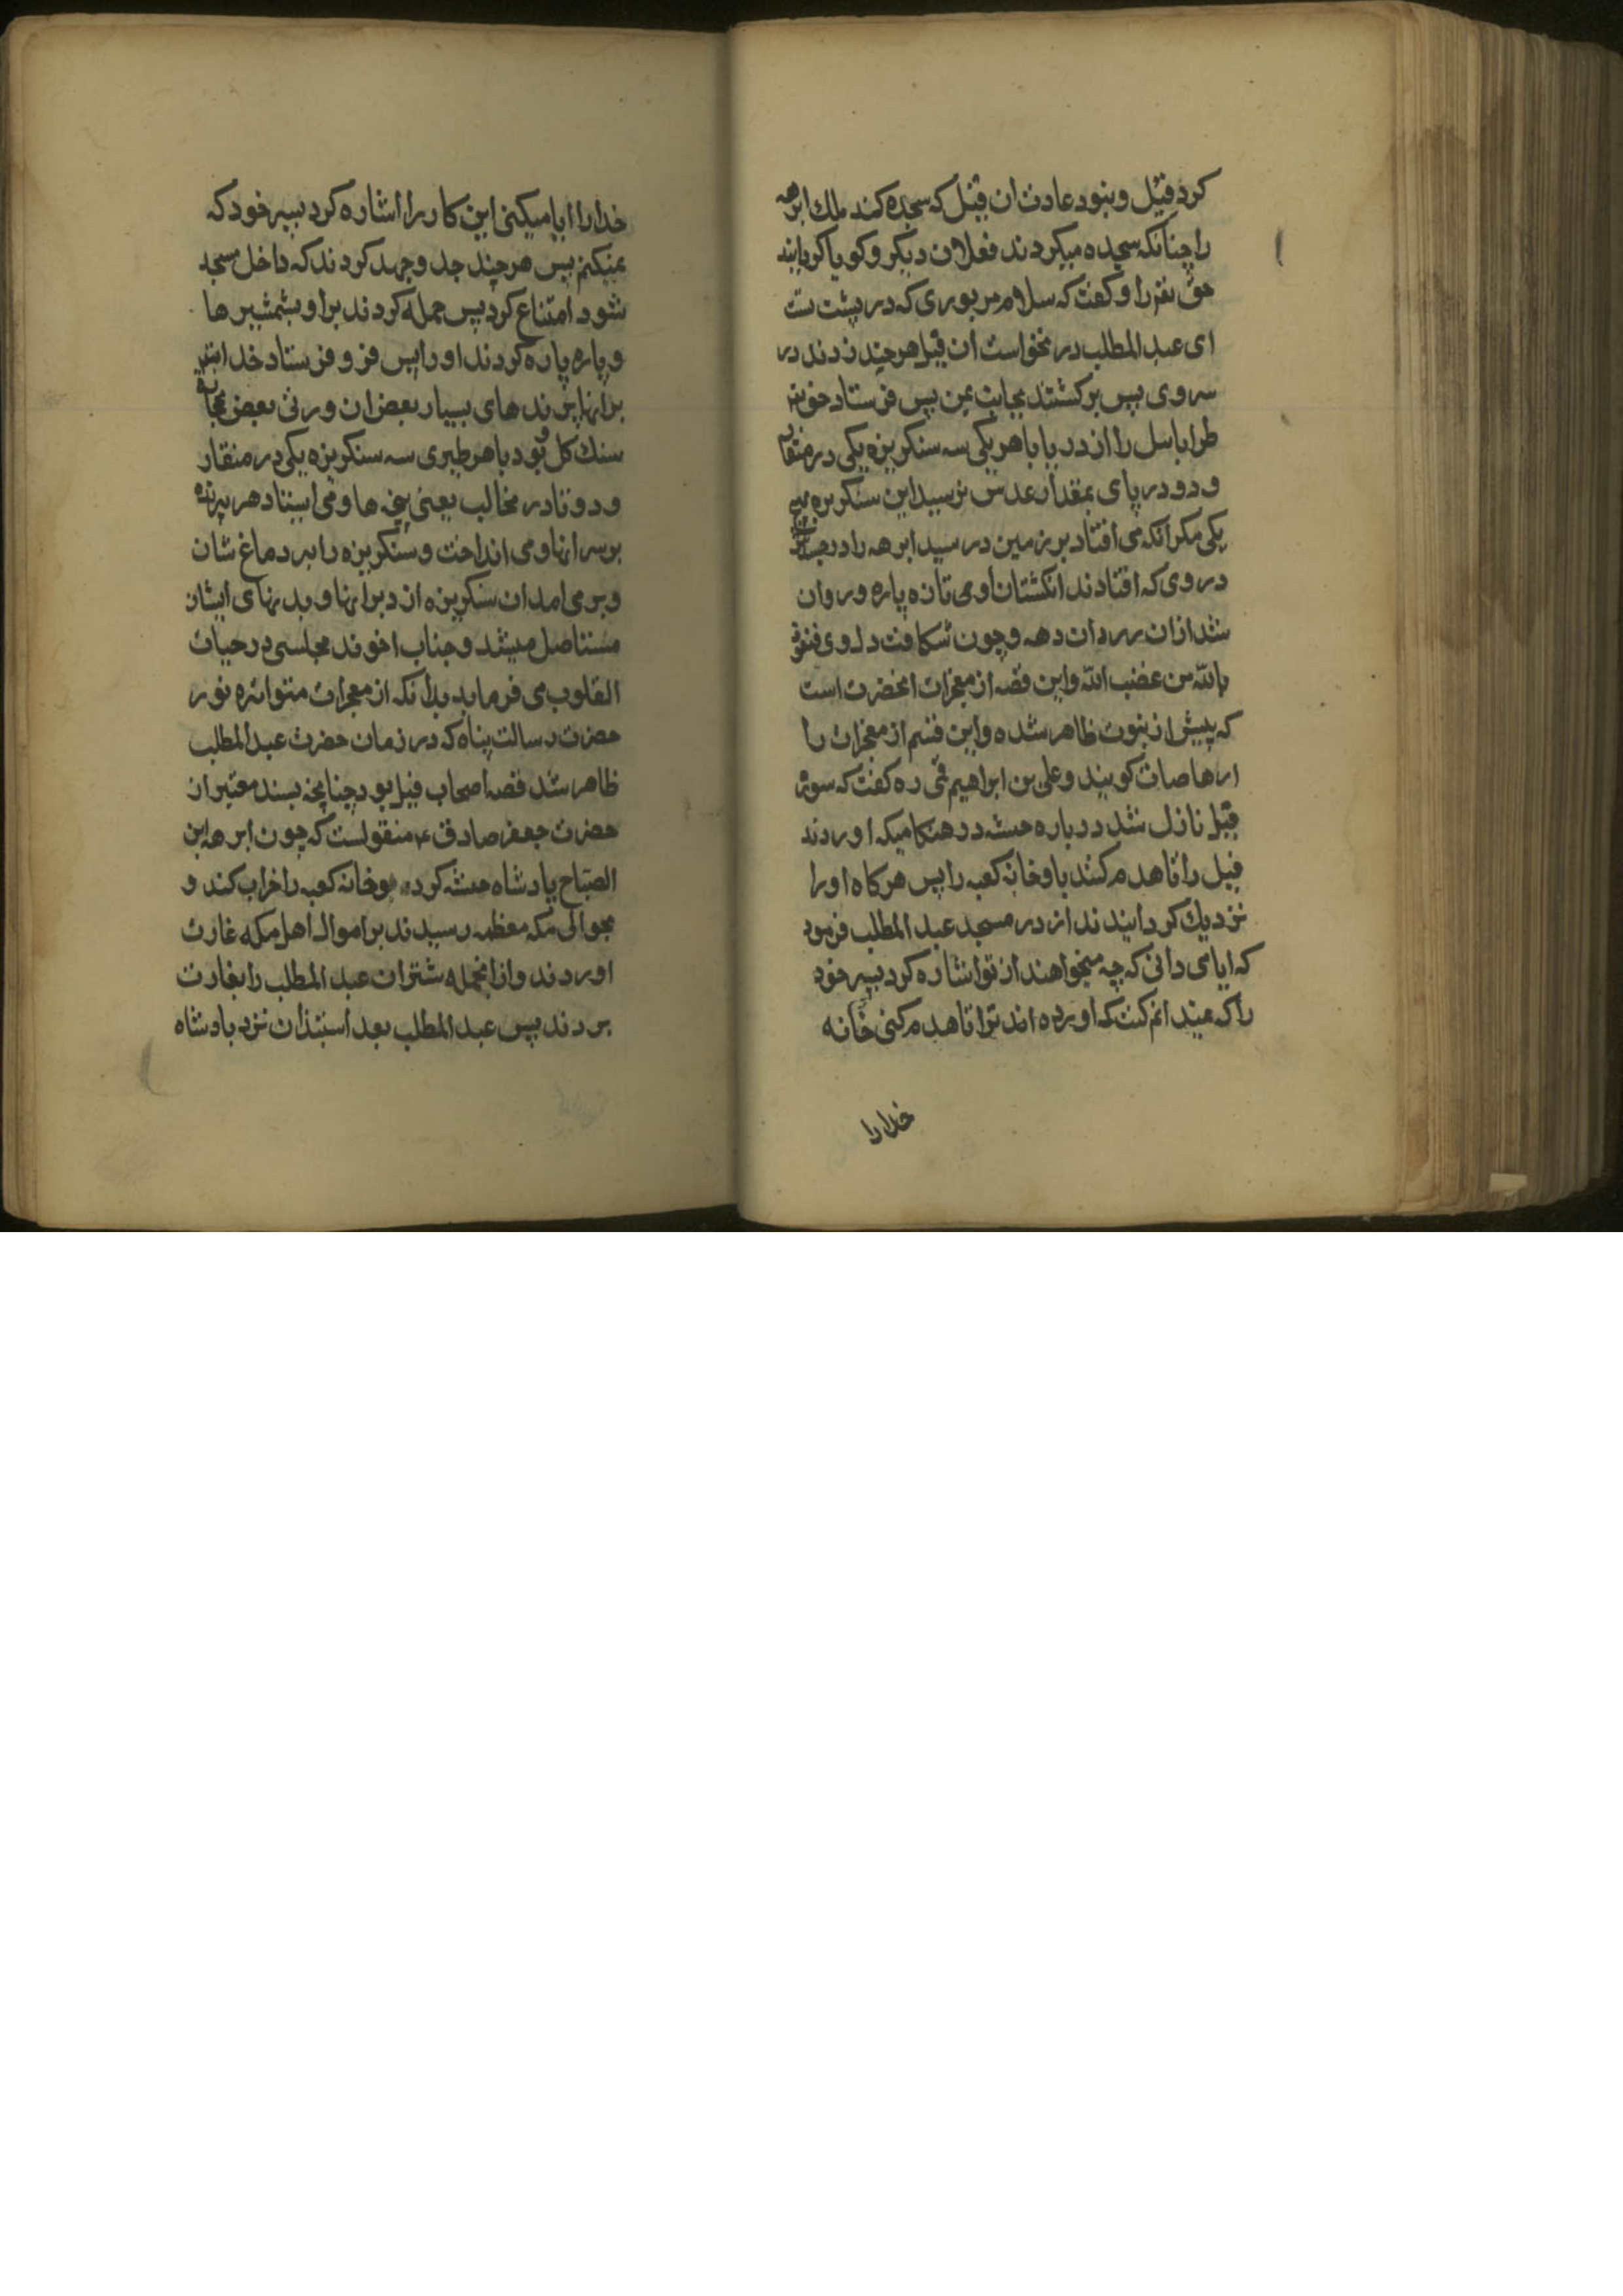 کرد فیل و نبود عادت ان فیل که سجده کند ملک ابرهه
را چنانکه سجده میکردند فعلان دیکر و کویا کردانید
حق نعم را و کفت که سلام بر نوری که در پشت تست
ای عبد المطلب در نخواست ان فیل هر چند زدند در
سر وی پس برکشتند بجانب یمن پس فرستاد حق نعم
طرا بابیل را از دریا با هر یکی سه سنکریزه یکی در منقار
و دو در پای بمقدار عدس نرسید این سنکریزه
یکی مکر انکه می افتاد بر زمین در رسید ابرهه را در
در وی که افتادند انکشتان اوی تازه پاره و روان
شد از ان دهه و چون شکافت دل وی فنعوذ
بالله من غضب الله و این قصه از معجزات انحضرت است
که پیش از نبوت ظاهر شده و این قسم از معجزات را
ارهاصات کویند و علی بن ابراهیم قمی ره کفت که سوره
فیل نازل شد در باره حبشه در هنکامیکه اوردند
فیل را تا هدم کنند باو خانه کعبه را پس هرکاه او را
نزدیک کردانیدند از در مسجد عبد المطلب فرمود
که ایا می دانی که چه میخواهند از تو اشاره کرد بسر خود
را که نمیدانم کفت که اورده اند ترا تا هدم کنی خانه
خدا را
خدا را ایا میکنی این کار را اشاره کرد بسر خود که
نمیکنم پس هر چند جد و جهد کردند که داخل مسجد
شود امتناع کرد پس حمله کردند بر او بشمشیر ها
و پاره پاره کردند او را پس فرو فرستاد خدا
بر انها پرند های بسیار بعض ان در پی بعض بحجاره
سنک کل بود با هر طیری سه سنکریزه یکی در منقار
و دو تا در مخالب یعنی پنجه ها و می ایستاد هر پرنده
بر سر انها و می انداخت و سنکریزه را بر دماغ شان
و بر می امد ان سنکریزه از دبر انها و بدنهای ایشان
مستاصل میشد و جناب اخوند مجلسی در حیات
القلوب می فرماید بدانکه از معجزات متواتره نور
حضرت رسالت پناه که در زمان حضرت عبد المطلب
ظاهر شد قصه اصحاب فیل بود چنانچه بسند معتبر از
حضرت جعفر صادق ع منقولست که چون ابرهه ابن
الصباح پادشاه حبشه کرد خانه کعبه را خراب کند و
بحوالی مکه معظمه رسیدند بر اموال اهل مکه غارت
اوردند و از انجمله شتران عبد المطلب را بغارت
بردند پس عبد المطلب بعد استیذان نزد بادشاه